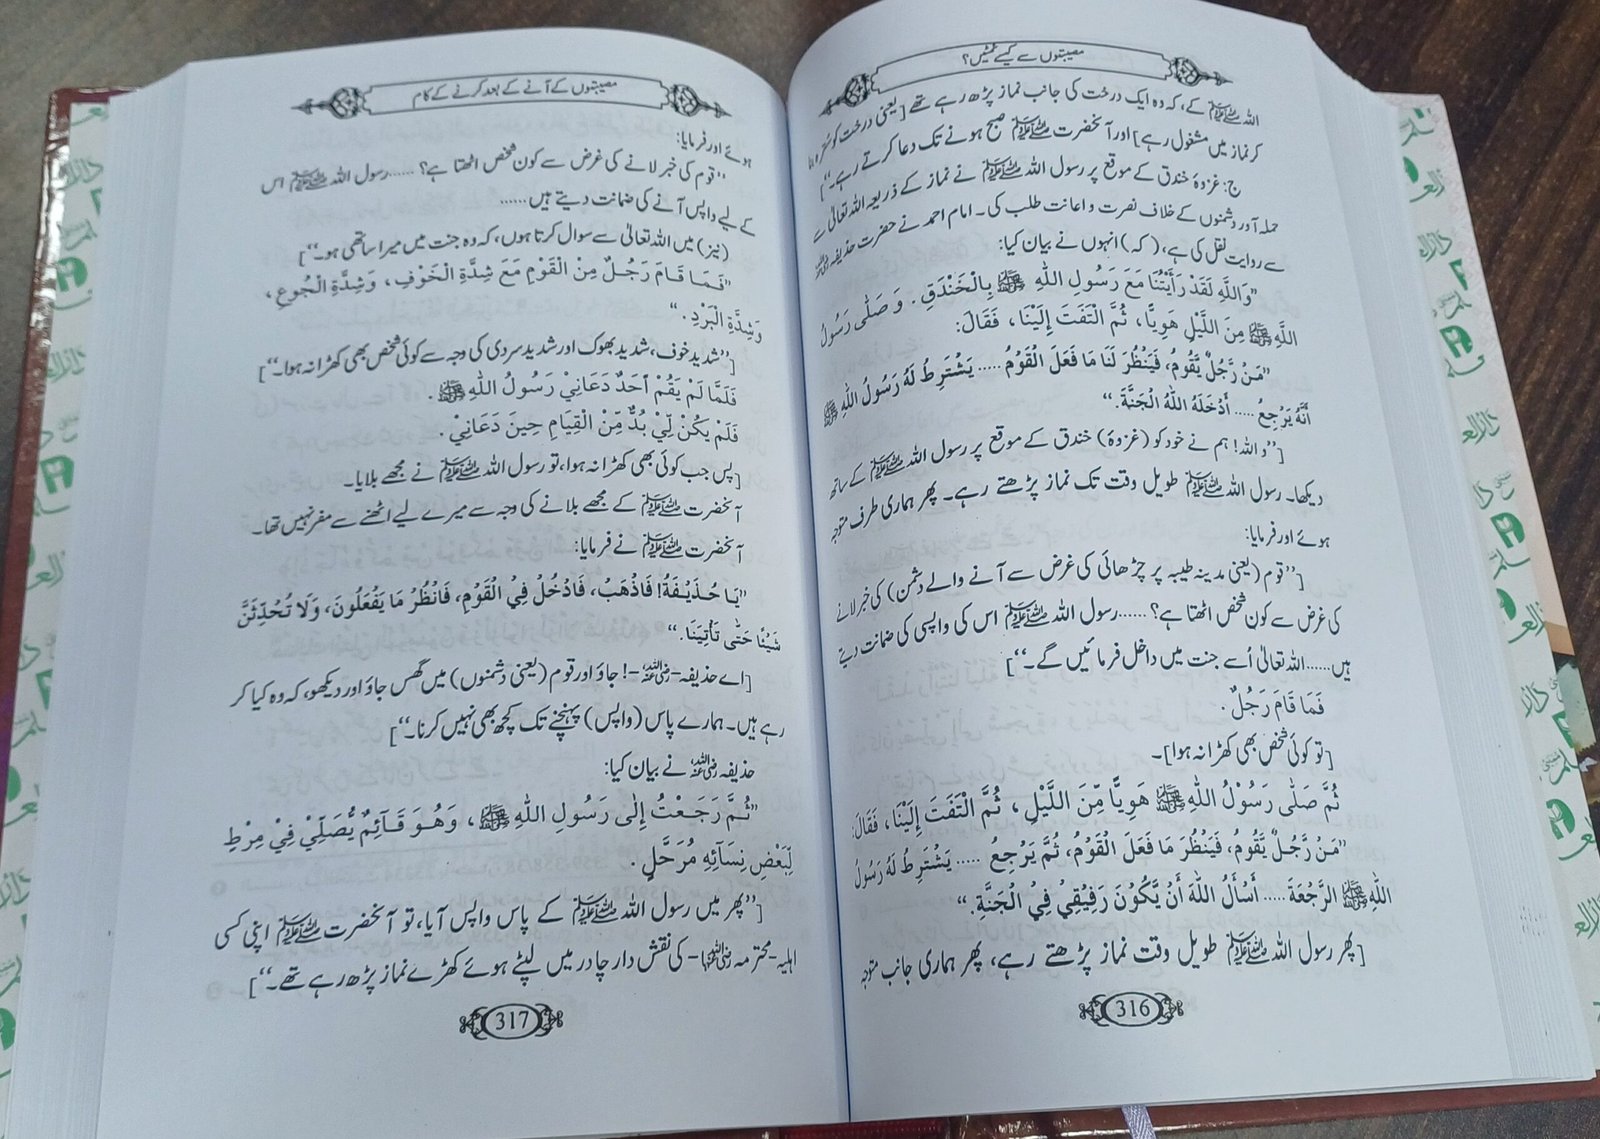 مصیبتوں سے کیسے نمٹیں؟
اللہ ﷺ کے، کہ وہ ایک درخت کی جانب نماز پڑھ رہے تھے [یعنی درخت کو سُترہ بنا
کر نماز میں مشغول رہے] اور آنحضرت ﷺ صبح ہونے تک دعا کرتے رہے۔‘‘]
ج: غزوۂ خندق کے موقع پر رسول اللہ ﷺ نے نماز کے ذریعہ اللہ تعالیٰ سے
حملہ آور دشمنوں کے خلاف نصرت و اعانت طلب کی۔ امام احمد نے حضرت حذیفہ رضی اللہ عنہ
سے روایت نقل کی ہے، (کہ) انہوں نے بیان کیا:
’’وَاللّٰهِ لَقَدْ رَأَيْتُنَا مَعَ رَسُولِ اللّٰهِ ﷺ بِالْخَنْدَقِ . وَ صَلّٰى رَسُولُ
اللّٰهِ ﷺ مِنَ اللَّيْلِ هَوِيًّا، ثُمَّ الْتَفَتَ إِلَيْنَا، فَقَالَ:
’’مَنْ رَّجُلٌ يَّقُومُ، فَيَنْظُرَ لَنَا مَا فَعَلَ الْقَوْمُ ..... يَشْتَرِطُ لَهُ رَسُولُ اللّٰهِ ﷺ
أَنَّهُ يَرْجِعُ ..... أَدْخَلَهُ اللّٰهُ الْجَنَّةَ.‘‘
[’’واللہ! ہم نے خود کو (غزوۂ) خندق کے موقع پر رسول اللہ ﷺ کے ساتھ
دیکھا۔ رسول اللہ ﷺ طویل وقت تک نماز پڑھتے رہے۔ پھر ہماری طرف متوجہ
ہوئے اور فرمایا:
[’’قوم (یعنی مدینہ طیبہ پر چڑھائی کی غرض سے آنے والے دشمن) کی خبر لانے
کی غرض سے کون شخص اٹھتا ہے؟ ...... رسول اللہ ﷺ اس کی واپسی کی ضمانت دیتے
ہیں ...... اللہ تعالیٰ اُسے جنت میں داخل فرمائیں گے۔‘‘]
فَمَا قَامَ رَجُلٌ .
[تو کوئی شخص بھی کھڑا نہ ہوا]۔
ثُمَّ صَلّٰى رَسُوْلُ اللّٰهِ ﷺ هَوِيًّا مِّنَ اللَّيْلِ ، ثُمَّ الْتَفَتَ إِلَيْنَا، فَقَالَ:
’’مَنْ رَّجُلٌ يَّقُومُ، فَيَنْظُرَ مَا فَعَلَ الْقَوْمُ، ثُمَّ يَرْجِعُ ..... يَشْتَرِطُ لَهُ رَسُولُ
اللّٰهِ ﷺ الرَّجْعَةَ ..... أَسْأَلُ اللّٰهَ أَنْ يَّكُوْنَ رَفِيْقِيْ فِي الْجَنَّةِ .‘‘
[پھر رسول اللہ ﷺ طویل وقت نماز پڑھتے رہے، پھر ہماری جانب متوجہ
316
مصیبتوں کے آنے کے بعد کرنے کے کام
ہوئے اور فرمایا:
’’قوم کی خبر لانے کی غرض سے کون شخص اٹھتا ہے؟ ...... رسول اللہ ﷺ اس
کے لیے واپس آنے کی ضمانت دیتے ہیں ......
(نیز) میں اللہ تعالیٰ سے سوال کرتا ہوں، کہ وہ جنت میں میرا ساتھی ہو۔‘‘]
’’فَـمَـا قَـامَ رَجُـلٌ مِـنْ الْقَوْمِ مَعَ شِدَّةِ الْخَوْفِ، وَشِدَّةِ الْجُوعِ،
وَشِدَّةِ الْبَرْدِ .‘‘
[’’شدید خوف، شدید بھوک اور شدید سردی کی وجہ سے کوئی شخص بھی کھڑا نہ ہوا۔‘‘]
فَلَمَّا لَمْ يَقُمْ أَحَدٌ دَعَانِيْ رَسُولُ اللّٰهِ ﷺ .
فَلَمْ يَكُنْ لِّيْ بُدٌّ مِّنْ الْقِيَامِ حِينَ دَعَانِيْ .
[پس جب کوئی بھی کھڑا نہ ہوا، تو رسول اللہ ﷺ نے مجھے بلایا۔
آنحضرت ﷺ کے مجھے بلانے کی وجہ سے میرے لیے اٹھنے سے مفر نہیں تھا۔
آنحضرت ﷺ نے فرمایا:
’’يَـا حُـذَيْـفَةُ! فَاذْهَبْ، فَادْخُلْ فِي الْقَوْمِ، فَانْظُرْ مَا يَفْعَلُونَ، وَلَا تُحْدِثَنَّ
شَيْئًا حَتّٰى تَأْتِيَنَا.‘‘
[اے حذیفہ-رضی اللہ عنہ-! جاؤ اور قوم (یعنی دشمنوں) میں گھس جاؤ اور دیکھو، کہ وہ کیا کر
رہے ہیں۔ ہمارے پاس (واپس) پہنچنے تک کچھ بھی نہیں کرنا۔‘‘]
حذیفہ رضی اللہ عنہ نے بیان کیا:
’’ثُـمَّ رَجَـعْـتُ إِلٰى رَسُـولِ اللّٰهِ ﷺ ، وَهُـوَ قَـآئِـمٌ يُّصَلِّيْ فِيْ مِرْطٍ
لِّبَعْضِ نِسَآئِهِ مُرَحَّلٍ .
[’’پھر میں رسول اللہ ﷺ کے پاس واپس آیا، تو آنحضرت ﷺ اپنی کسی
اہلیہ-محترمہ رضی اللہ عنہا- کی نقش دار چادر میں لپٹے ہوئے کھڑے نماز پڑھ رہے تھے۔‘‘]
317